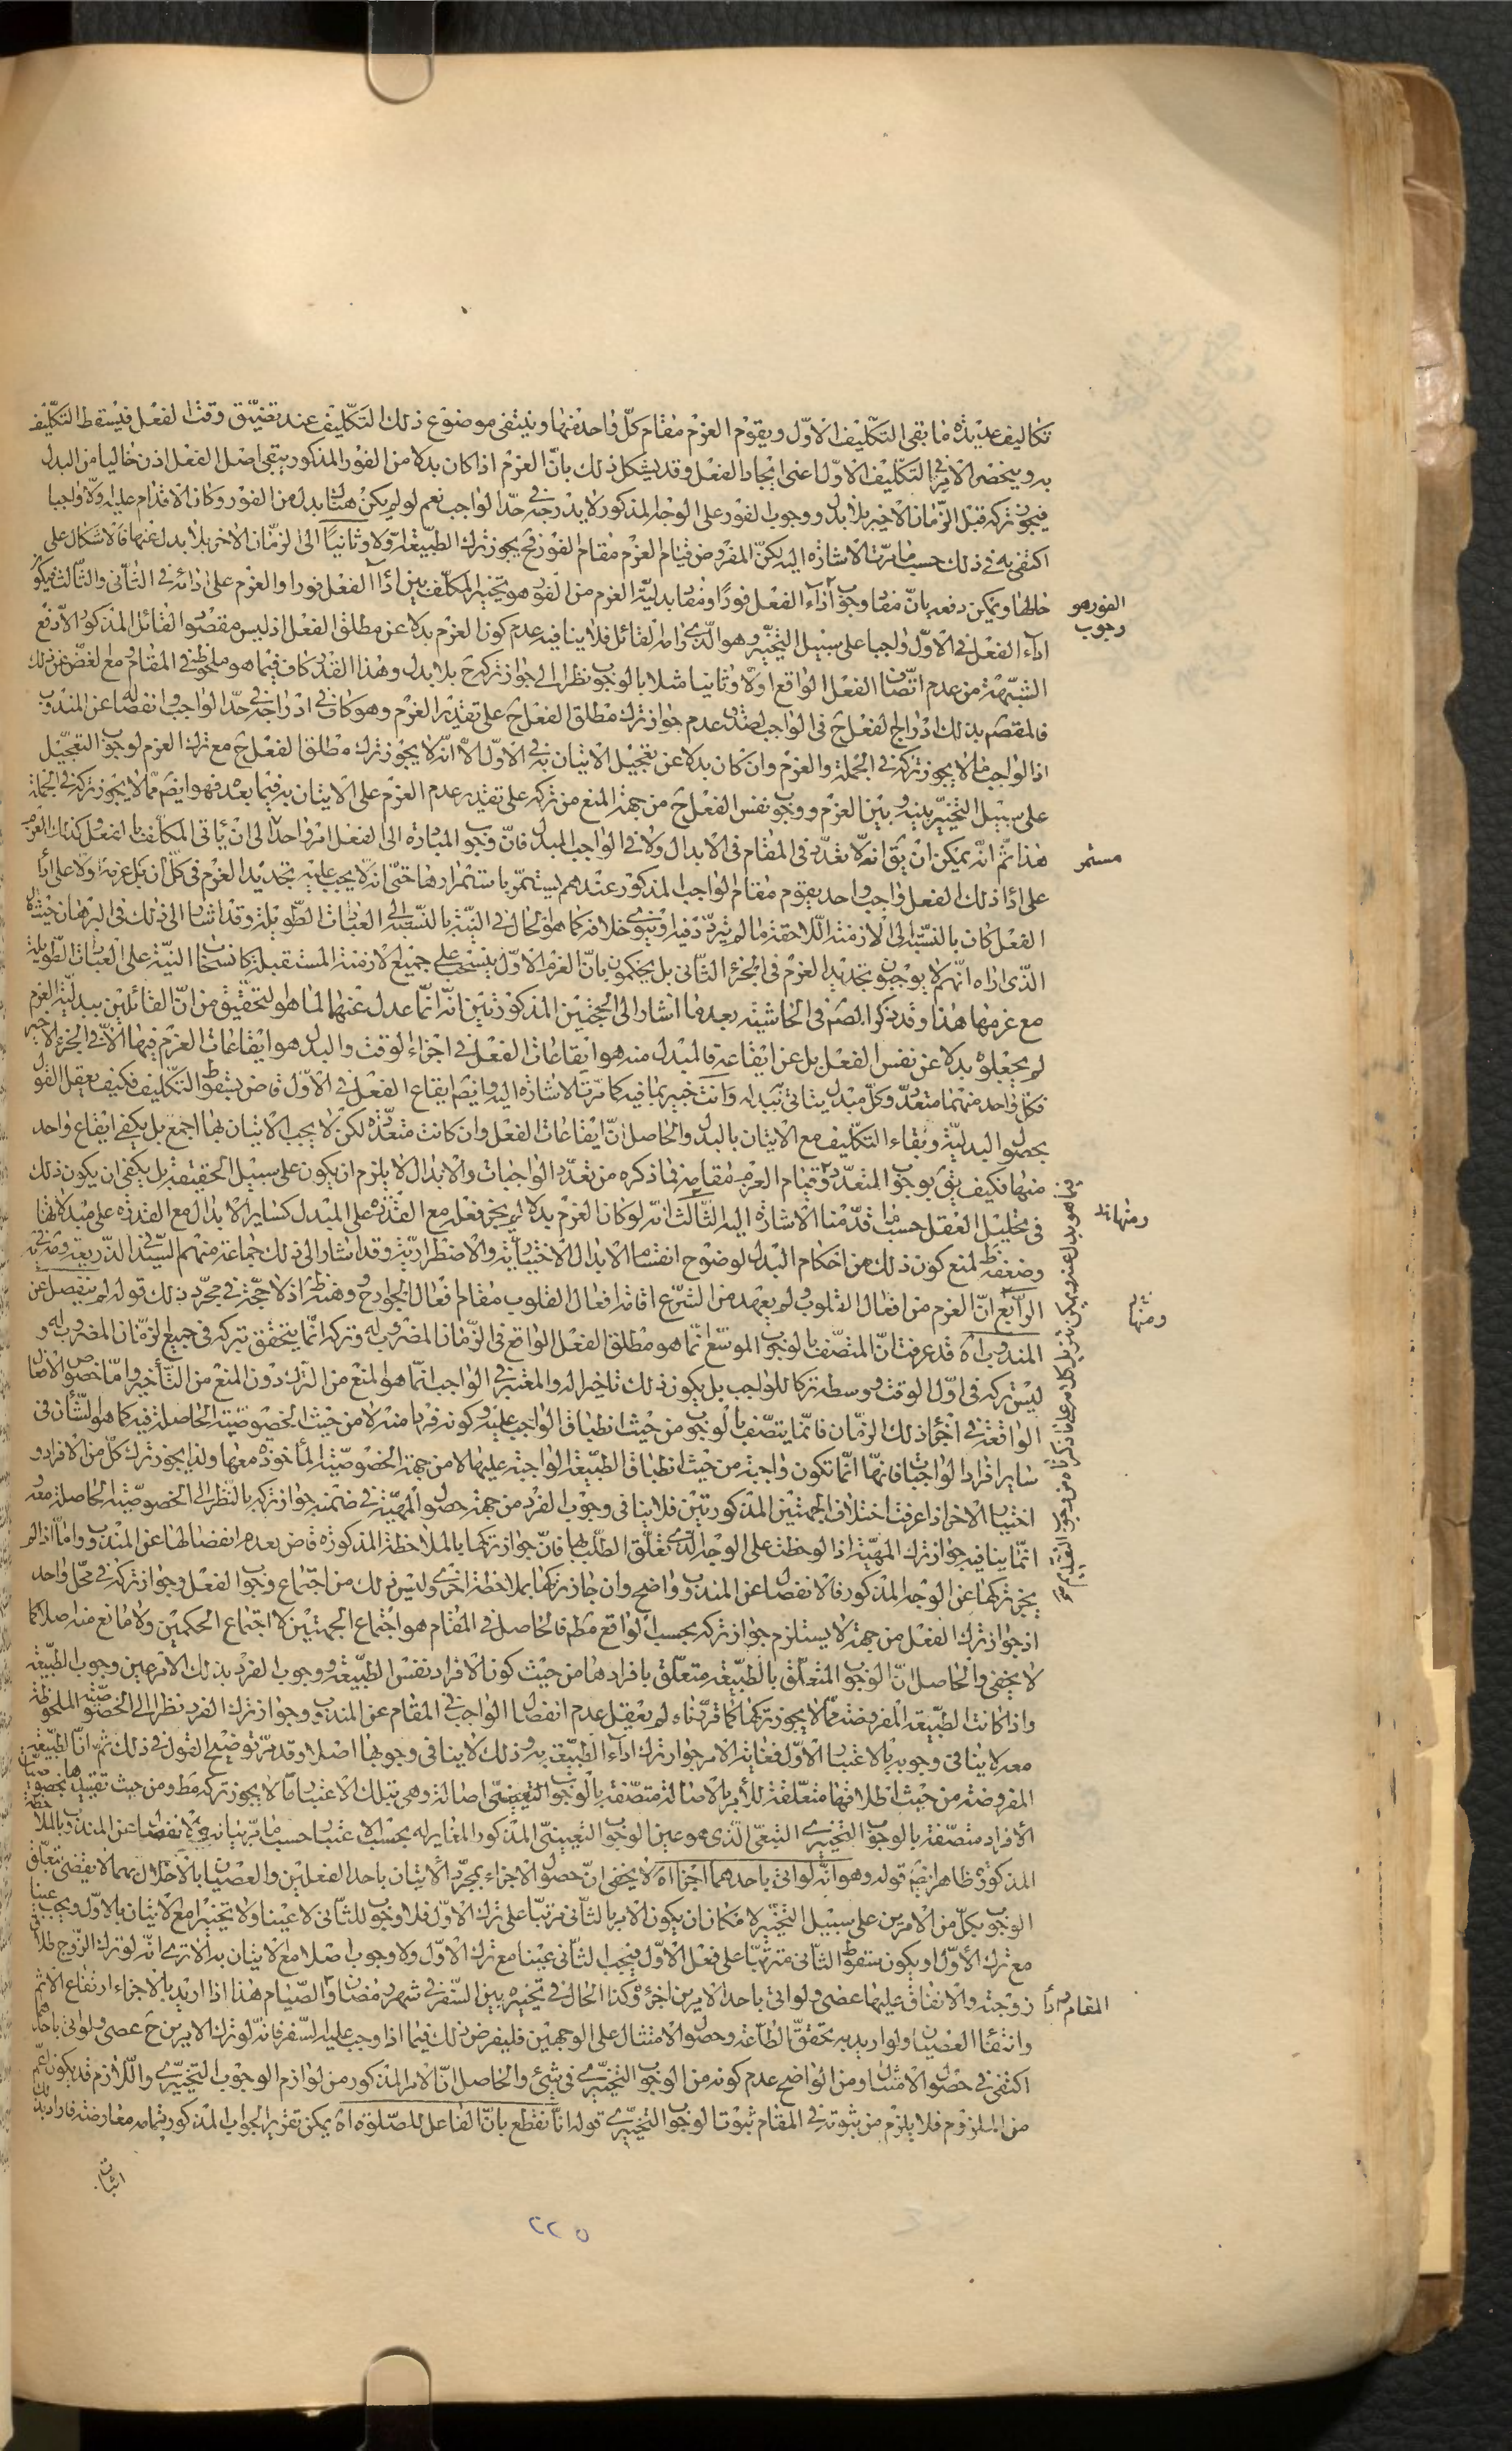 تكاليف عديدة ما بقى التكليف الاول ويقوم العزم مقام كل واحد منها وينتفى موضوع ذلك التكليف عند تضيق وقت الفعل فيسقط التكليف
به وينحصر الامر فى التكليف الاول اعنى ايجاد الفعل وقد يشكل ذلك بان العزم اذا كان بدلا من الفور المذكور يبقى اصل الفعل اذن خاليا من البدل
فيجوز تركه قبل الزمان الاخير بلا بدل ووجوب الفور على الوجه المذكور لا يدرجه فى حد الواجب نعم لو لم يكن هناك بدل من الفور وكان الاقدام عليه اولا واجبا
اكتفى به فى ذلك حسب ما مرت الاشارة اليه لكن المفروض قيام العزم مقام الفور فح يجوز ترك الطبيعة اولا وثانيا الى الزمان الاخر بلا بدل عنها فالاشكال على
حالها ويمكن دفعه بان مفاد وجوب اداء الفعل فورا ومفاد بدلية العزم من الفور هو تخيير المكلف بين اداء الفعل فورا والعزم على ادائه فى الثانى والثالث فيكون
الفور هو
وجوب
اداء الفعل فى الاول واجبا على سبيل التخيير وهو الذى رامه القائل فلا ينافيه عدم كون العزم بدلا عن مطلق الفعل اذ ليس مقصود القائل المذكور الا دفع
الشبهة من عدم اتصاف الفعل الواقع اولا وثانيا مثلا بالوجوب نظرا الى جواز تركه ح بلا بدل وهذا القدر كاف فيما هو ملحوظه فى المقام مع الغض عن ذلك
فالمقصم بذلك ادراج الفعل ح فى الواجب لصدق عدم جواز ترك مطلق الفعل ح على تقدير العزم وهو كاف فى ادراجه فى حد الواجب وانفصاله عن المندوب
اذ الواجب ما لا يجوز تركه فى الجملة والعزم وان كان بدلا عن تعجيل الاتيان به فى الاول الا انه لا يجوز ترك مطلق الفعل ح مع ترك العزم لوجوب التعجيل
على سبيل التخيير بينه وبين العزم ووجوب نفس الفعل ح من جهة المنع من تركه على تقدير عدم العزم على الاتيان به فيما بعد فهو ايضم مما لا يجوز تركه فى الجملة
هذا ثم انه يمكن ان يق انه لا تعدد فى المقام فى الابدال ولا فى الواجب المبدل فان وجوب المبادرة الى الفعل امر واحد الى ان ياتى المكلف بالفعل كذلك العزم
مستمر
على اداء ذلك الفعل واجب واحد يقوم مقام الواجب المذكور عندهم يستمر باستمرارها حتى انه لا يجب عليه تجديد العزم فى كل ان بل عزمه اولا على اداء
الفعل كان بالنسبة الى الازمنة اللاحقة ما لم يتردد فيه او ينوى خلافه كما هو الحال فى النية بالنسبة الى العبادات الطويلة وقد اشار الى ذلك فى البرهان حيث قال
الذى اراه انهم لا يوجبون تجديد العزم فى الجزء الثانى بل يحكمون بان العزم الاول ينسحب على جميع الازمنة المستقبلة كانسحاب النية على العبادات الطويلة
مع عزمها هذا وقد ذكر المصم فى الحاشية بعد ما اشار الى الحجتين المذكورتين انه انما عدل عنهما لما هو التحقيق من ان القائلين ببدلية العزم
لم يجعلوه بدلا عن نفس الفعل بل عن ايقاعه فالمبدل منه هو ايقاعات الفعل فى اجزاء الوقت والبدل هو ايقاعات العزم فيها الا فى الجزء الاخير
فكل واحد منهما متعدد وكل مبدل يتاتى ببدله وانت خبير بما فيه كما مرت الاشارة اليه وايضم ايقاع الفعل فى الاول قاض بسقوط التكليف فكيف يعقل القول
بحصول البدلية وبقاء التكليف مع الاتيان بالبدل والحاصل ان ايقاعات الفعل وان كانت متعددة لكن لا يجب الاتيان بها اجمع بل يكفى ايقاع واحد
منها فكيف يق بوجوب المتعدد وقيام العزم مقامه فما ذكره من تعدد الواجبات والابدال لا يلزم ان يكون على سبيل الحقيقة بل يكفى ان يكون ذلك
فى تحليل العقل حسب ما قدمنا الاشارة اليه الثالث انه لو كان العزم بدلا لم يجز فعله مع القدرة على المبدل كساير الابدال مع القدرة على مبدلاتها
ومنها انه
وضعفه ظ لمنع كون ذلك من احكام البدل لوضوح انقسام الابدال الاختيارية والاضطرارية وقد اشار الى ذلك جماعة منهم السيد فى الذريعة
الرابع ان العزم من افعال القلوب ولم يعهد من الشرع اقامة افعال القلوب مقام افعال الجوارح وهن ظ اذ لا حجة فى مجرد ذلك قوله لم ينفصل عن
ومنها
المندوب اه قد عرفت ان المتصف بالوجوب الموسع انما هو مطلق الفعل الواقع فى الزمان المضروب له وتركه انما يتحقق بتركه فى جميع الزمان المضروب له و
ليس تركه فى اول الوقت ووسطه تركا للواجب بل يكون ذلك تاخيرا له والمعتبر فى الواجب انما هو المنع من الترك دون المنع من التاخير واما خصوص الافعال
الواقعة فى اجزاء ذلك الزمان فانما يتصف بالوجوب من حيث انطباق الواجب عليه وكونه فردا منه لا من حيث الخصوصية الحاصلة فيه كما هو الشان فى
ساير افراد الواجبات فانها انما تكون واجبة من حيث انطباق الطبيعة الواجبة عليها لا من جهة الخصوصية المأخوذة معها ولذا يجوز ترك كل من الافراد و
اختيار الاخر اذا عرفت اختلاف الجهتين المذكورتين فلا ينافى وجوب الفرد من جهة حصول المهية فى ضمنه جواز تركه بالنظر الى الخصوصية الحاصلة معه
انما ينافيه جواز ترك المهية اذا لوحظت على الوجه الذى تعلق الطلب بها فان جواز تركها بالملاحظة المذكورة قاض بعدم انفصالها عن المندوب واما اذا لم
يجز تركها عن الوجه المذكور فالانفصال عن المندوب واضح وان جاز تركها بملاحظة اخرى وليس ذلك من اجتماع وجوب الفعل وجواز تركه فى محل واحد
اذ جواز ترك الفعل من جهة لا يستلزم جواز تركه بحسب الواقع مطم فالحاصل فى المقام هو اجتماع الجهتين لا اجتماع الحكمين ولا مانع منه اصلا كما
لا يخفى والحاصل ان الوجوب المتعلق بالطبيعة متعلق بافرادها من حيث كون الافراد نفس الطبيعة ووجوب الفرد بذلك الاعتبار عين وجوب الطبيعة
واذا كانت الطبيعة المفروضة مما لا يجوز تركها كما قررناه لم يعقل عدم انفصال الواجب فى المقام عن المندوب وجواز ترك الفرد نظرا الى الخصوصية الملحوظة
معه لا ينافى وجوبه بالاعتبار الاول فغاية الامر جواز ترك اداء الطبيعة به وذلك لا ينافى وجوبها اصلا وقد مر توضيح القول فى ذلك ثم ان الطبيعة
المفروضة من حيث اطلاقها متعلقة للأمر بالاصالة متصفة بالوجوب التعيينى اصالة وهى بتلك الاعتبار مما لا يجوز تركه مط ومن حيث تقييدها بخصوصيات
الافراد متصفة بالوجوب التخييرى التبعى الذى هو عين الوجوب التعيينى المذكور المغاير له بحسب الاعتبار حسب ما مر بيانه فالانفصال عن المندوب بالملاحظة
المذكورة ظاهر ايضم قوله وهو انه لو اتى باحدهما اجزأ اه لا يخفى ان حصول الاجزاء بمجرد الاتيان باحد الفعلين والعصيان بالاخلال بهما لا يقضى بتعلق
الوجوب بكل من الامرين على سبيل التخيير لامكان ان يكون الامر بالثانى مرتبا على ترك الاول فلا وجوب للثانى لا عينا ولا تخييرا مع الاتيان بالاول ويجب عينا
مع ترك الاول او يكون سقوط الثانى مترتبا على فعل الاول فيجب الثانى عينا مع ترك الاول ولا وجوب اصلا مع الاتيان به الا ترى انه لو ترك الزوج طلاق
زوجته والانفاق عليها عصى ولو اتى باحد الامرين اجزءه وكذا الحال فى تخييره بين السفر فى شهر رمضان والصيام هذا اذا اريد بالاجزاء ارتفاع الاثم
المقام م اذا
وانتفاء العصيان ولو اريد به تحقق الطاعة وحصول الامتثال على الوجهين فليفرض ذلك فيما اذا وجب عليه السفر فانه لو ترك الامرين ح عصى ولو اتى باحدهما
اكتفى فى حصول الامتثال ومن الواضح عدم كونه من الوجوب التخييرى فى شىء والحاصل ان الامر المذكور من لوازم الوجوب التخييرى واللازم قد يكون اعم
من الملزوم فلا يلزم من ثبوته فى المقام ثبوت الوجوب التخييرى قوله انا نقطع بان الفاعل للصلوة اه يمكن تقرير الجواب المذكور بتمامه معارضة فاراد بذلك
اثبات
٢٢٥